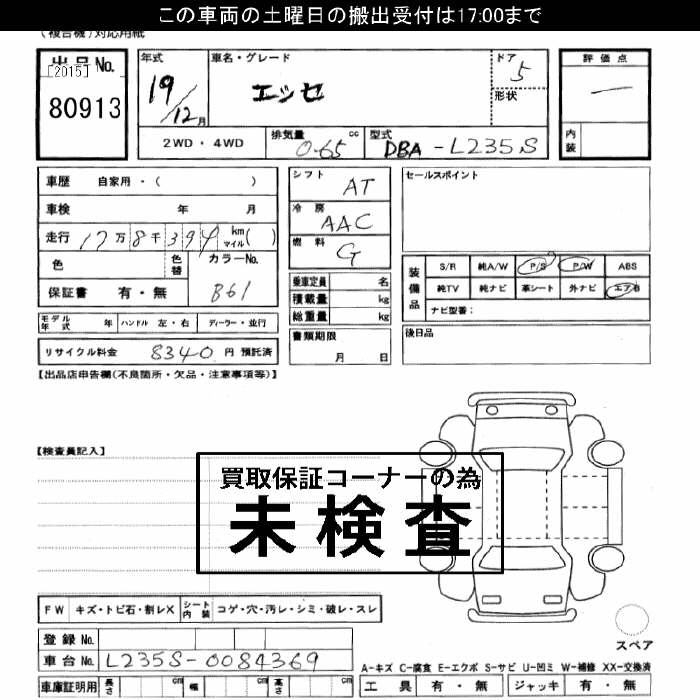 この車両の土曜日の搬出受付は17:00まで
(複合機)対応用紙
出品No.
[2015]
80913
年式
19/12月
車名・グレード
エッセ
ドア
5
形状
評価点
一
内装
2WD・4WD
排気量 0.65 cc
型式 DBA-L235S
車歴 自家用・( )
車検 年 月
走行 17万8千394 km マイル( )
色
色替
カラーNo.
B61
保証書 有・無
シフト
AT
冷房
AAC
燃料
G
乗車定員 名
積載量 kg
総重量 kg
書類期限
月 日
セールスポイント
装備品
S/R 純A/W P/S P/W ABS
純TV 純ナビ 革シート 外ナビ エアB
ナビ型番:
後日品
モデル年式 年 ハンドル 左・右 ディーラー・並行
リサイクル料金 8340 円 預託済
【出品店申告欄(不良箇所・欠品・注意事項等)】
【検査員記入】
買取保証コーナーの為
未検査
FW キズ・トビ石・割レX
シート内装 コゲ・穴・汚レ・シミ・破レ・スレ
スペア
登録No.
車台No. L235S-0084369
車庫証明用 長さ cm 幅 cm 高さ cm
A-キズ C-腐食 E-エクボ S-サビ U-凹ミ W-補修 XX-交換済
工具 有・無 ジャッキ 有・無